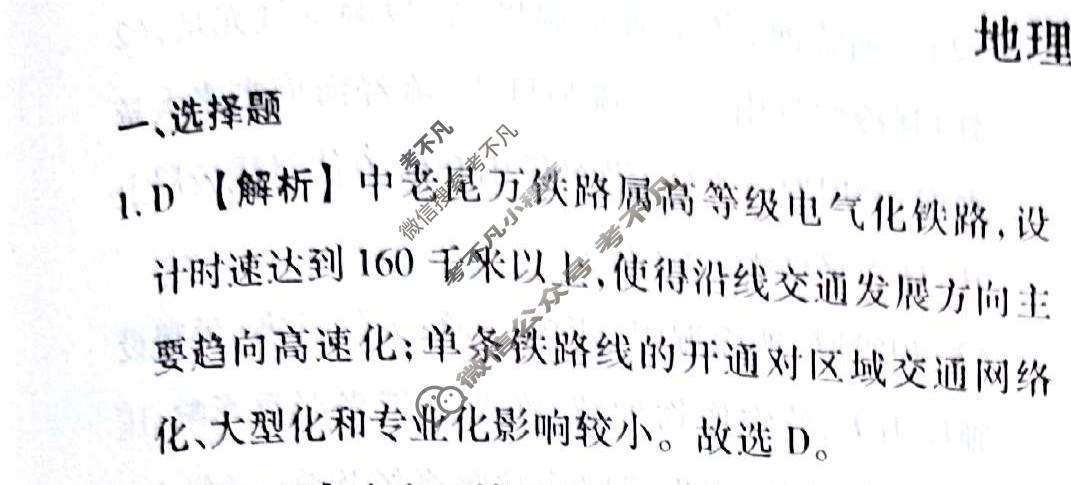 地理
一、选择题
1. D 【解析】中老昆万铁路属高等级电气化铁路,设
计时速达到 160 千米以上,使得沿线交通发展方向主
要趋向高速化;单条铁路线的开通对区域交通网络
化、大型化和专业化影响较小。故选 D。
考不凡
微信搜索考不凡
考不凡小程序
微信公众号 考不凡